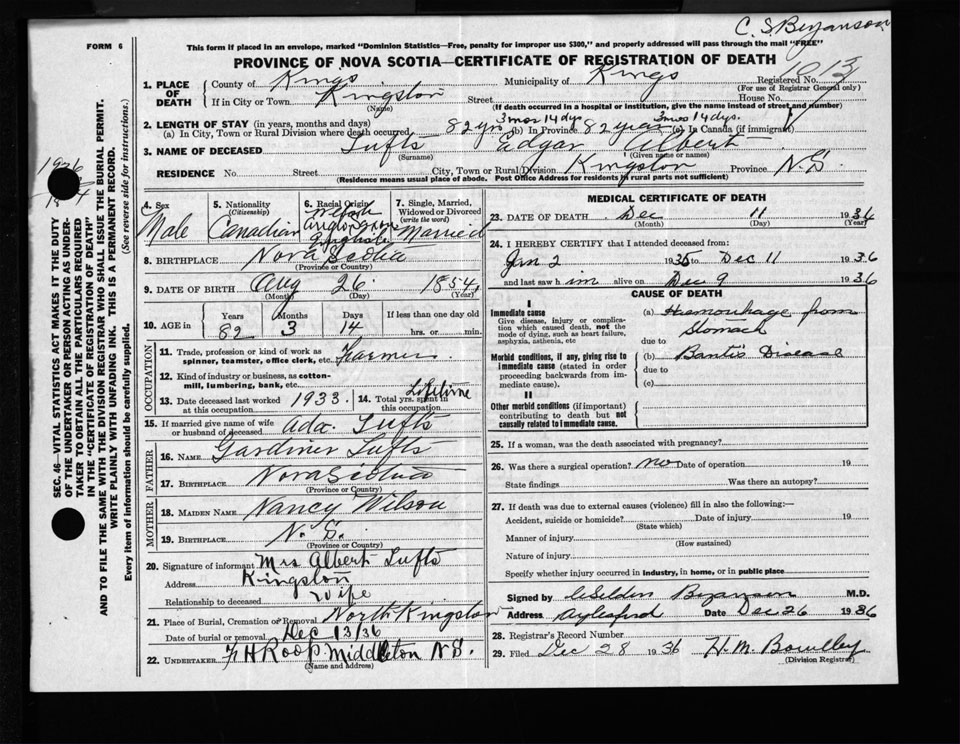 C. S. Bezanson
FORM 6
This form if placed in an envelope, marked "Dominion Statistics—Free, penalty for improper use $300," and properly addressed will pass through the mail "FREE"
PROVINCE OF NOVA SCOTIA—CERTIFICATE OF REGISTRATION OF DEATH
1. PLACE OF DEATH
County of Kings Municipality of Kings Registered No.
(For use of Registrar General only)
If in City or Town Kingston Street House No.
(Name) (If death occurred in a hospital or institution, give the name instead of street and number)
2. LENGTH OF STAY (in years, months and days)
3 mos 14 dys. 3 mos 14 dys.
(a) In City, Town or Rural Division where death occurred 82 yrs (b) In Province 82 years (c) In Canada (if immigrant)
3. NAME OF DECEASED Tufts Edgar Albert
(Surname) (Given name or names)
RESIDENCE No. Street City, Town or Rural Division Kingston Province N.S.
(Residence means usual place of abode. Post Office Address for residents of rural parts not sufficient)
4. Sex Male
5. Nationality (Citizenship) Canadian
6. Racial Origin
7. Single, Married, Widowed or Divorced (write the word) Married
8. BIRTHPLACE Nova Scotia
(Province or Country)
9. DATE OF BIRTH Aug 26 1854
(Month) (Day) (Year)
10. AGE in Years Months Days If less than one day old
82 3 14 hrs. or min.
OCCUPATION
11. Trade, profession or kind of work as spinner, teamster, office clerk, etc. Farmer
12. Kind of industry or business, as cotton-mill, lumbering, bank, etc.
13. Date deceased last worked at this occupation 1933
14. Total yrs. spent in this occupation Lifetime
15. If married give name of wife or husband of deceased Ada Tufts
FATHER
16. NAME Gardiner Tufts
17. BIRTHPLACE Nova Scotia
(Province or Country)
MOTHER
18. MAIDEN NAME Nancy Wilson
19. BIRTHPLACE N. S.
(Province or Country)
20. Signature of informant Mrs Albert Tufts
Address Kingston
Relationship to deceased Wife
21. Place of Burial, Cremation or Removal North Kingston
Date of burial or removal Dec 13/36
22. UNDERTAKER F H Roop Middleton N S.
(Name and address)
MEDICAL CERTIFICATE OF DEATH
23. DATE OF DEATH Dec 11 1936
(Month) (Day) (Year)
24. I HEREBY CERTIFY that I attended deceased from:
Jan 2 1935 to Dec 11 1936
and last saw h im alive on Dec 9 1936
CAUSE OF DEATH
I
Immediate cause
Give disease, injury or complication which caused death, not the mode of dying, such as heart failure, asphyxia, asthenia, etc
(a) Haemorrhage from Stomach
due to
Morbid conditions, if any, giving rise to immediate cause (stated in order proceeding backwards from immediate cause).
(b) Banti's Disease
due to
(c)
II
Other morbid conditions (if important) contributing to death but not causally related to immediate cause.
25. If a woman, was the death associated with pregnancy?
26. Was there a surgical operation? no Date of operation 19
State findings Was there an autopsy?
27. If death was due to external causes (violence) fill in also the following:—
Accident, suicide or homicide? Date of injury 19
(State which)
Manner of injury
(How sustained)
Nature of injury
Specify whether injury occurred in industry, in home, or in public place
Signed by Bezanson M.D.
Address Aylesford Date Dec 26 1936
28. Registrar's Record Number
29. Filed Dec 28 1936 H. M.
(Division Registrar)
SEC. 46—VITAL STATISTICS ACT MAKES IT THE DUTY
OF THE UNDERTAKER OR PERSON ACTING AS UNDERTAKER TO OBTAIN ALL THE PARTICULARS REQUIRED
IN THE "CERTIFICATE OF REGISTRATION OF DEATH"
AND TO FILE THE SAME WITH THE DIVISION REGISTRAR WHO SHALL ISSUE THE BURIAL PERMIT.
WRITE PLAINLY WITH UNFADING INK. THIS IS A PERMANENT RECORD.
Every item of information should be carefully supplied.
(See reverse side for instructions.)